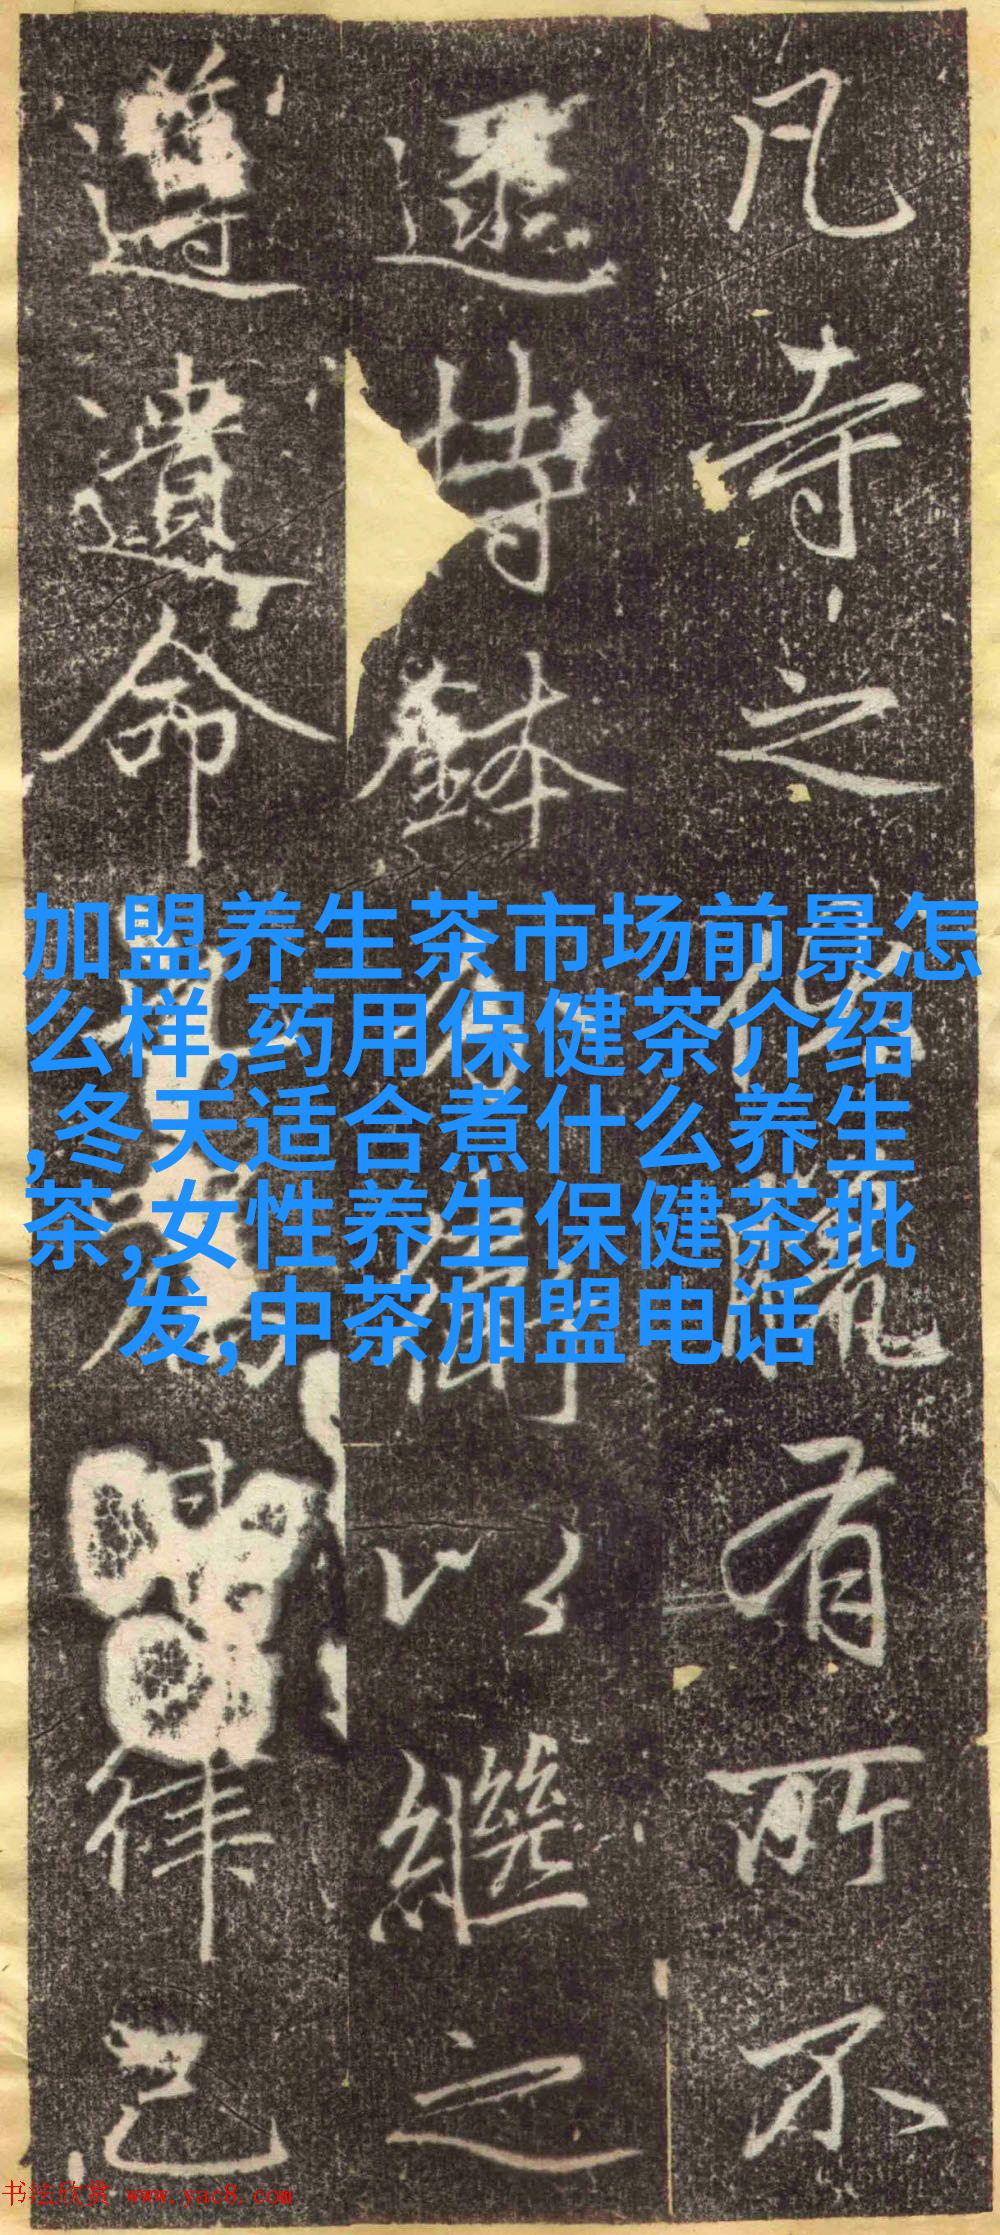 凡寺之
有所不
遝持鉢
以繼之
遵遺命
律己
加盟养生茶市场前景怎
么样,药用保健茶介绍
,冬天适合煮什么养生
茶,女性养生保健茶批
发,中茶加盟电话
书法欣赏 www.yac8.com